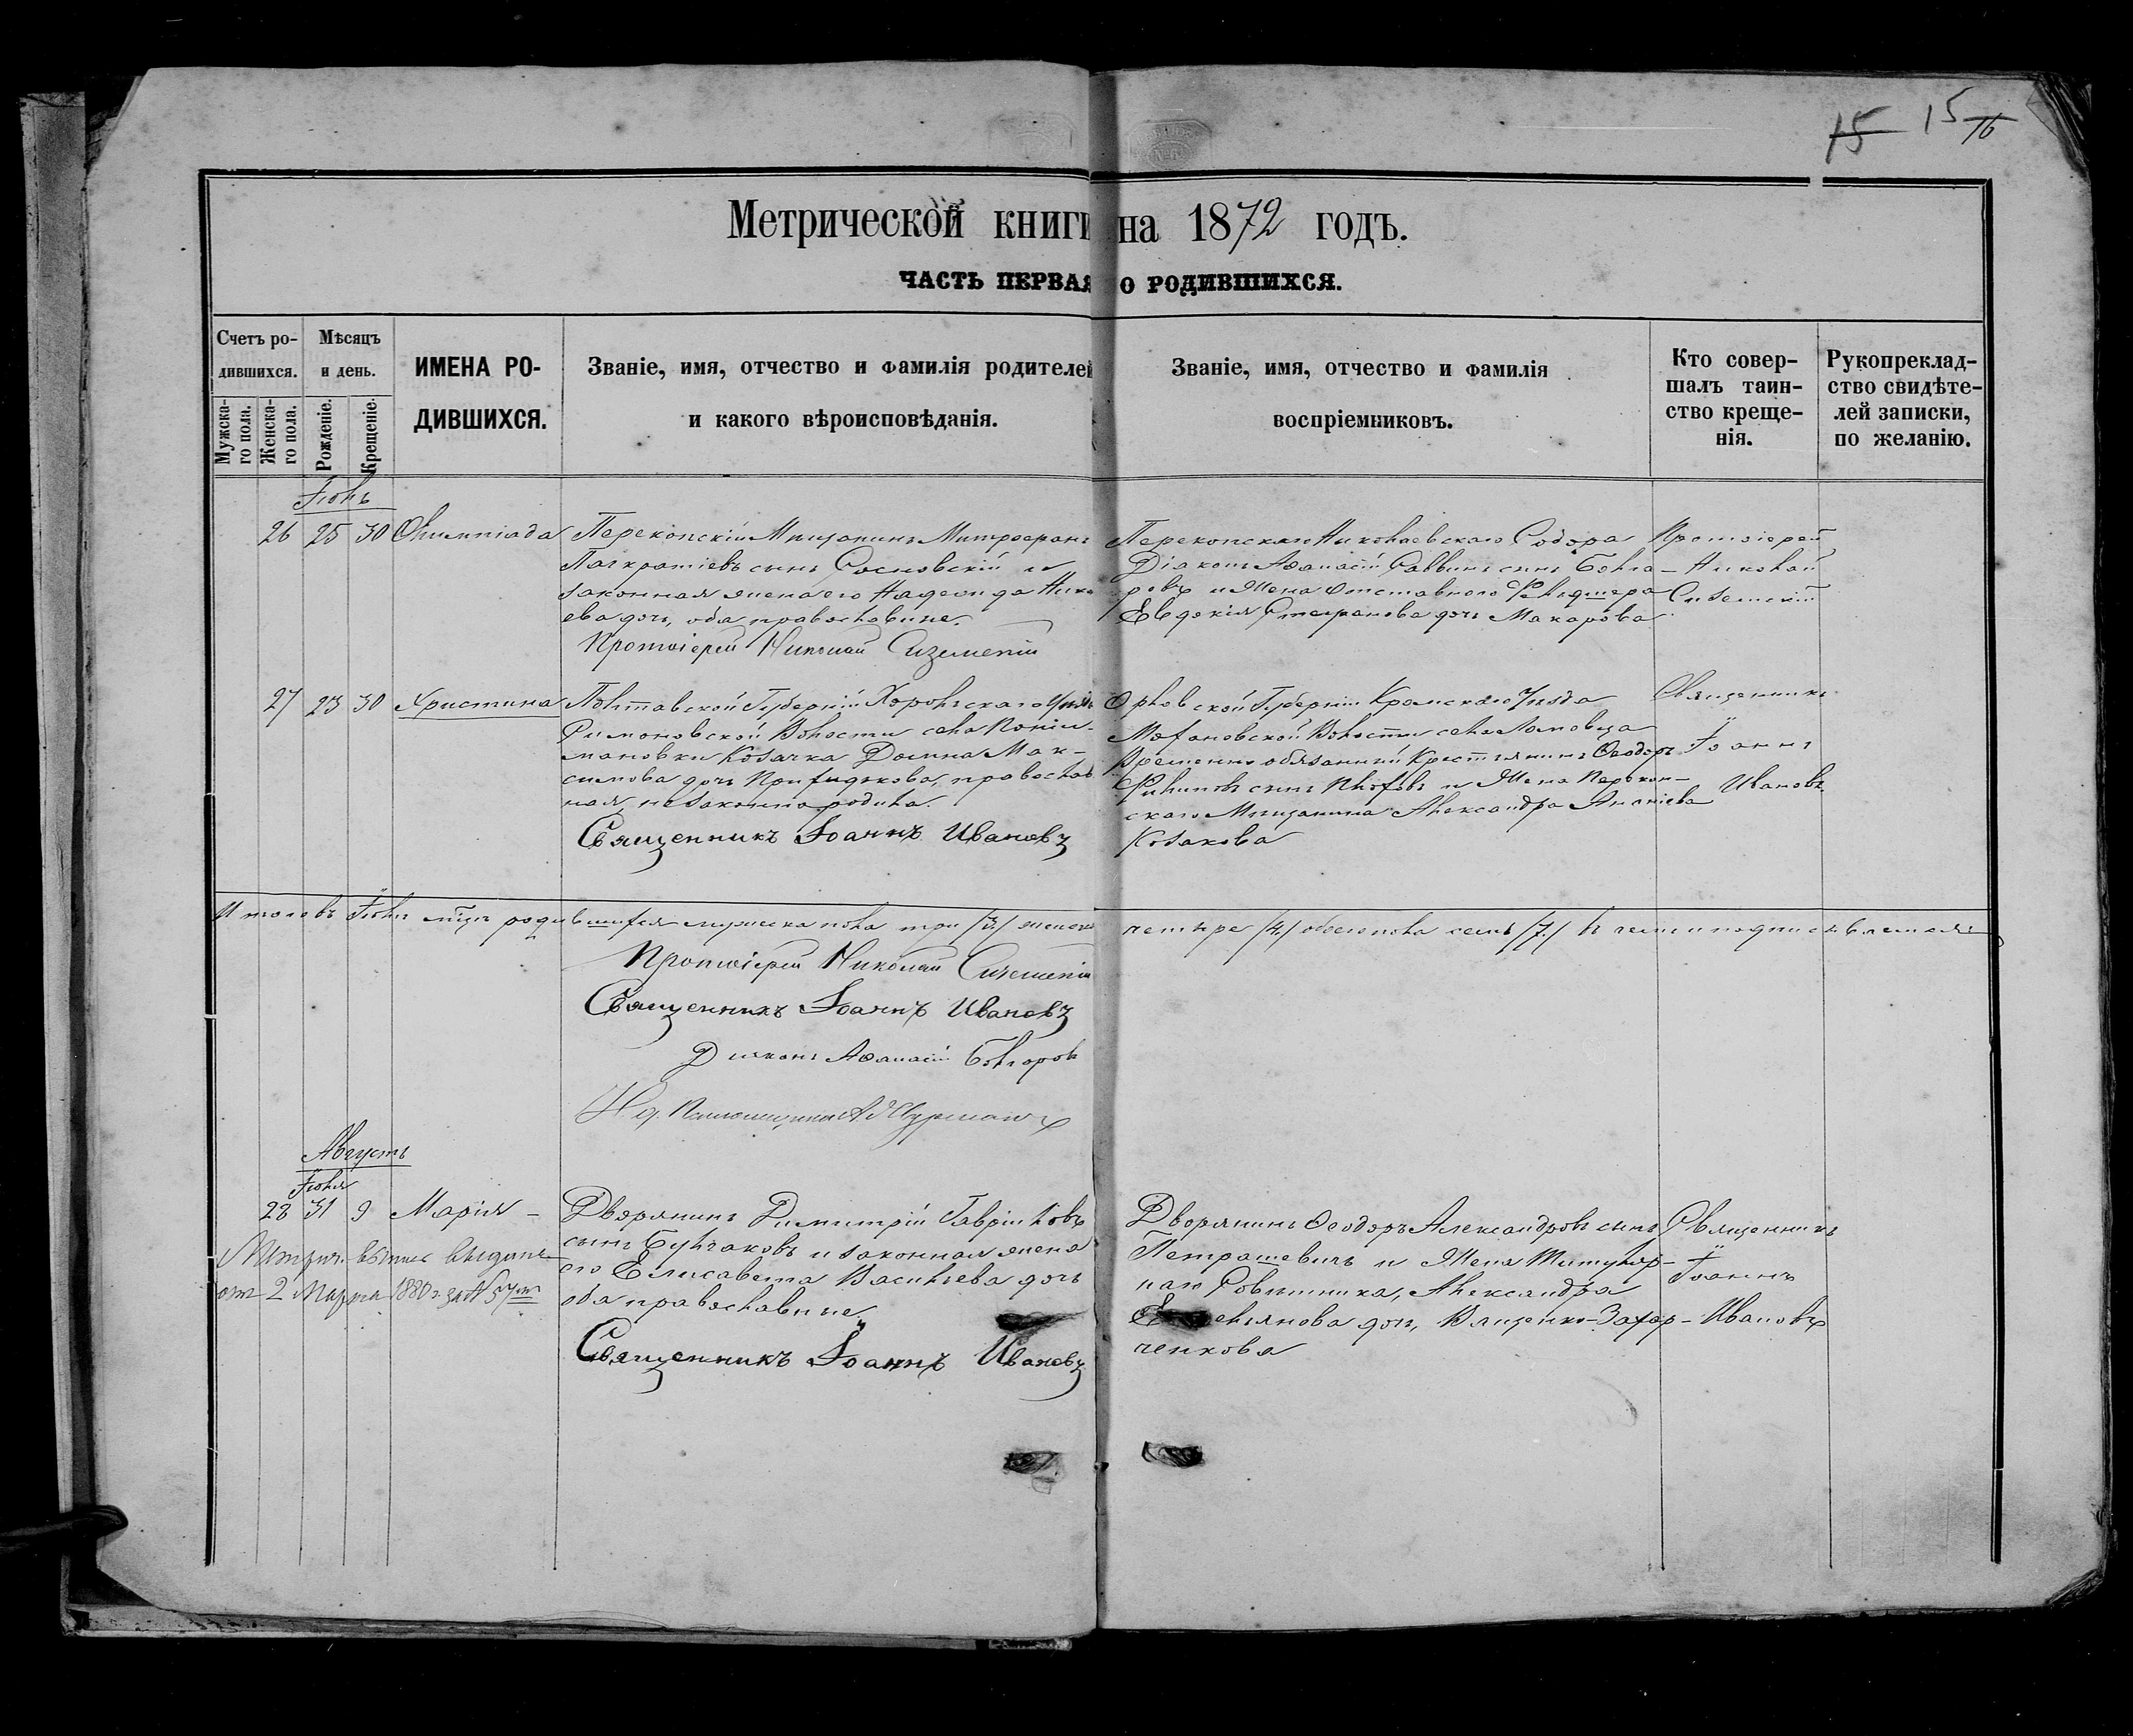 15 15 16
Метрической книги на 1872 годъ.
ЧАСТЬ ПЕРВАЯ О РОДИВШИХСЯ.
Счетъ ро-
дившихся.
Мужска-
го пола.
Женска-
го пола.
Мѣсяцъ
и день.
Рожденіе.
Крещеніе.
ИМЕНА РО-
ДИВШИХСЯ.
Званіе, имя, отчество и фамилія родителей
и какого вѣроисповѣданія.
Званіе, имя, отчество и фамилія
воспріемниковъ.
Кто совер-
шалъ таин-
ство креще-
нія.
Рукоприклад-
ство свидѣте-
лей записки,
по желанію.
Іюль
26 25 30 Олимпіада
Перекопскій Мещанинъ Митрофанъ
Панкратіевъ сынъ Сосновскій и
законная жена его
ева дочь, оба православные.
Протоіерей Николай
Перекопскаго Николаевскаго Собора
Діаконъ Аѳанасій Саввинъ сынъ Болго-
ровъ и Жена отставного Фельдшера
Евдокія Стефанова дочь Макарова
Протоіерей
Николай
27 23 30 Христина
Полтавской Губерніи Хорольскаго Уѣзда
Волости села
Козачка Домна Мак-
симова дочь православ
ная, незаконно родила.
Священникъ Іоаннъ Ивановъ
Орловской Губерніи Кромскаго Уѣзда
Волости села
Временно обязанный Крестьянинъ Ѳеодоръ
Филиповъ сынъ и Жена Перекоп-
скаго Мещанина Александра Ананіева
Козакова
Священникъ
Іоаннъ
Ивановъ
Итого въ Іюлѣ м-цѣ родившихся мужска пола три /3/ женска четыре /4/ обоего пола семь /7/ въ чемъ и подписываемся
Протоіерей Николай
Священникъ Іоаннъ Ивановъ
Діаконъ Аѳанасій Болгоровъ
Августъ
Іюля
28 31 9 Марія
Дворянинъ Димитрій Гавріиловъ
сынъ Бунчаковъ и законная жена
его Елисавета Васильева дочь
оба православные.
Священникъ Іоаннъ Ивановъ
Дворянинъ Ѳеодоръ Александровъ сынъ
Петрашевичъ и Жена Титуляр-
наго Совѣтника, Александра
дочь,
ченкова
Священникъ
Іоаннъ
Ивановъ
Метрич. выпись выдана
отъ 2 Марта 1880 г. за №